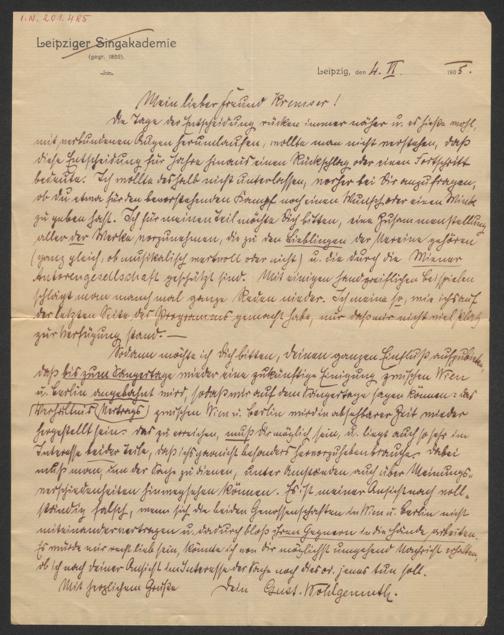 I.N. 201.485
Leipziger Singakademie
(gegr. 1802).
Leipzig, den 4. VI. 1905.
Mein lieber Freund Kremser!
Die Tage der Entscheidung rücken immer näher u. es hieße wohl,
mit verbundenen Augen herumlaufen, wollte man nicht verstehen, daß
diese Entscheidung für Jahre hinaus einen Rückschlag oder einen Fortschritt
bedeute. Ich wollte deshalb nicht unterlassen, vorher bei Dir anzufragen,
ob Du etwa für den bevorstehenden Kampf noch einen Wunsch oder einen Wink
zu geben hast. Ich für meinen Teil möchte Dich bitten, eine Zusammenstellung
aller der Werke vorzunehmen, die zu den Lieblingen der Vereine gehören
(ganz gleich, ob musikalisch wertvoll oder nicht) u. die durch die Wiener
Autorengesellschaft geschützt sind. Mit einigen handgreiflichen Beispielen
schlägt man manchmal ganze Reden nieder. Ich meine so, wie ich's auf
der letzten Seite des Programms gemacht habe, nur daß mir nicht viel Platz
zur Verfügung stand. —
Sodann möchte ich Dich bitten, Deinen ganzen Einfluß aufzubieten,
daß bis zum Sängertage wieder eine zukünftige Einigung zwischen Wien
u. Berlin angebahnt wird, sodaß wir auf dem Sängertage sagen können: das
Verhältnis (Vertrags) zwischen Wien u. Berlin wird in absehbarer Zeit wieder
hergestellt sein. Das zu erreichen, muß Dir möglich sein, u. liegt auch so sehr im
Interesse beider Teile, daß ich's gar nicht besonders hervorzuheben brauche. Dabei
muß man, um der Sache zu dienen, unter Umständen auch über Meinungs-
verschiedenheiten hinwegsehen können. Es ist meiner Ansicht nach voll-
ständig falsch, wenn sich die beiden Genossenschaften in Wien u. Berlin nicht
miteinander vertragen u. dadurch bloß ihren Gegnern in die Hände arbeiten.
Es würde mir recht lieb sein, könnte ich von Dir möglichst umgehend Nachricht erhalten,
ob ich nach Deiner Ansicht im Interesse der Sache noch dies od. jenes tun soll.
Mit herzlichem Gruße Dein Gust. Wohlgemuth.